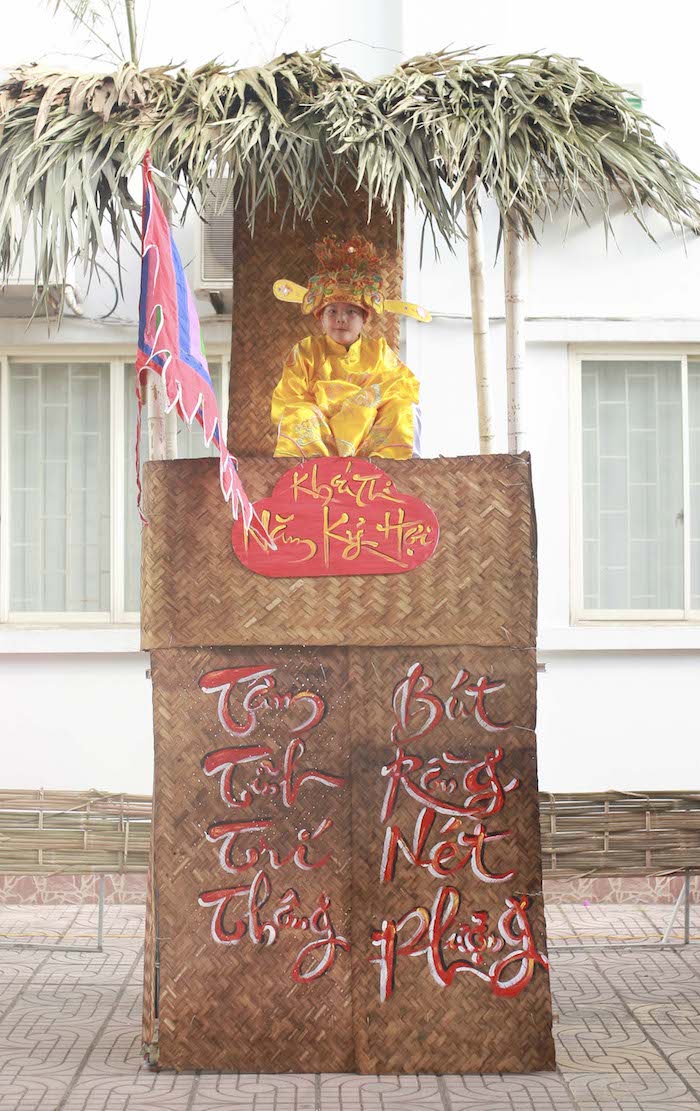 Khoá Thi
Năm Kỷ Hợi
Tâm
Tĩnh
Trí
Thông
Bút
Rồng
Nét
Phượng